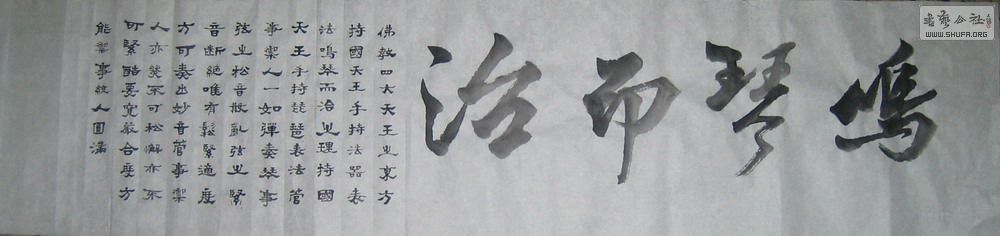 鳴琴而治
佛教四大天王之東方
持國天王手持法器表
法鳴琴而治之理持國
天王手持琵琶表法管
事禦人一如彈奏琴事
弦之松音散亂弦之緊
音断絶唯有鬆緊適度
方可奏出妙音管事禦
人亦然不可松懈亦不
可緊酷要寬嚴合度方
能禦事統人圓滿
书艺公社
WWW.SHUFA.ORG